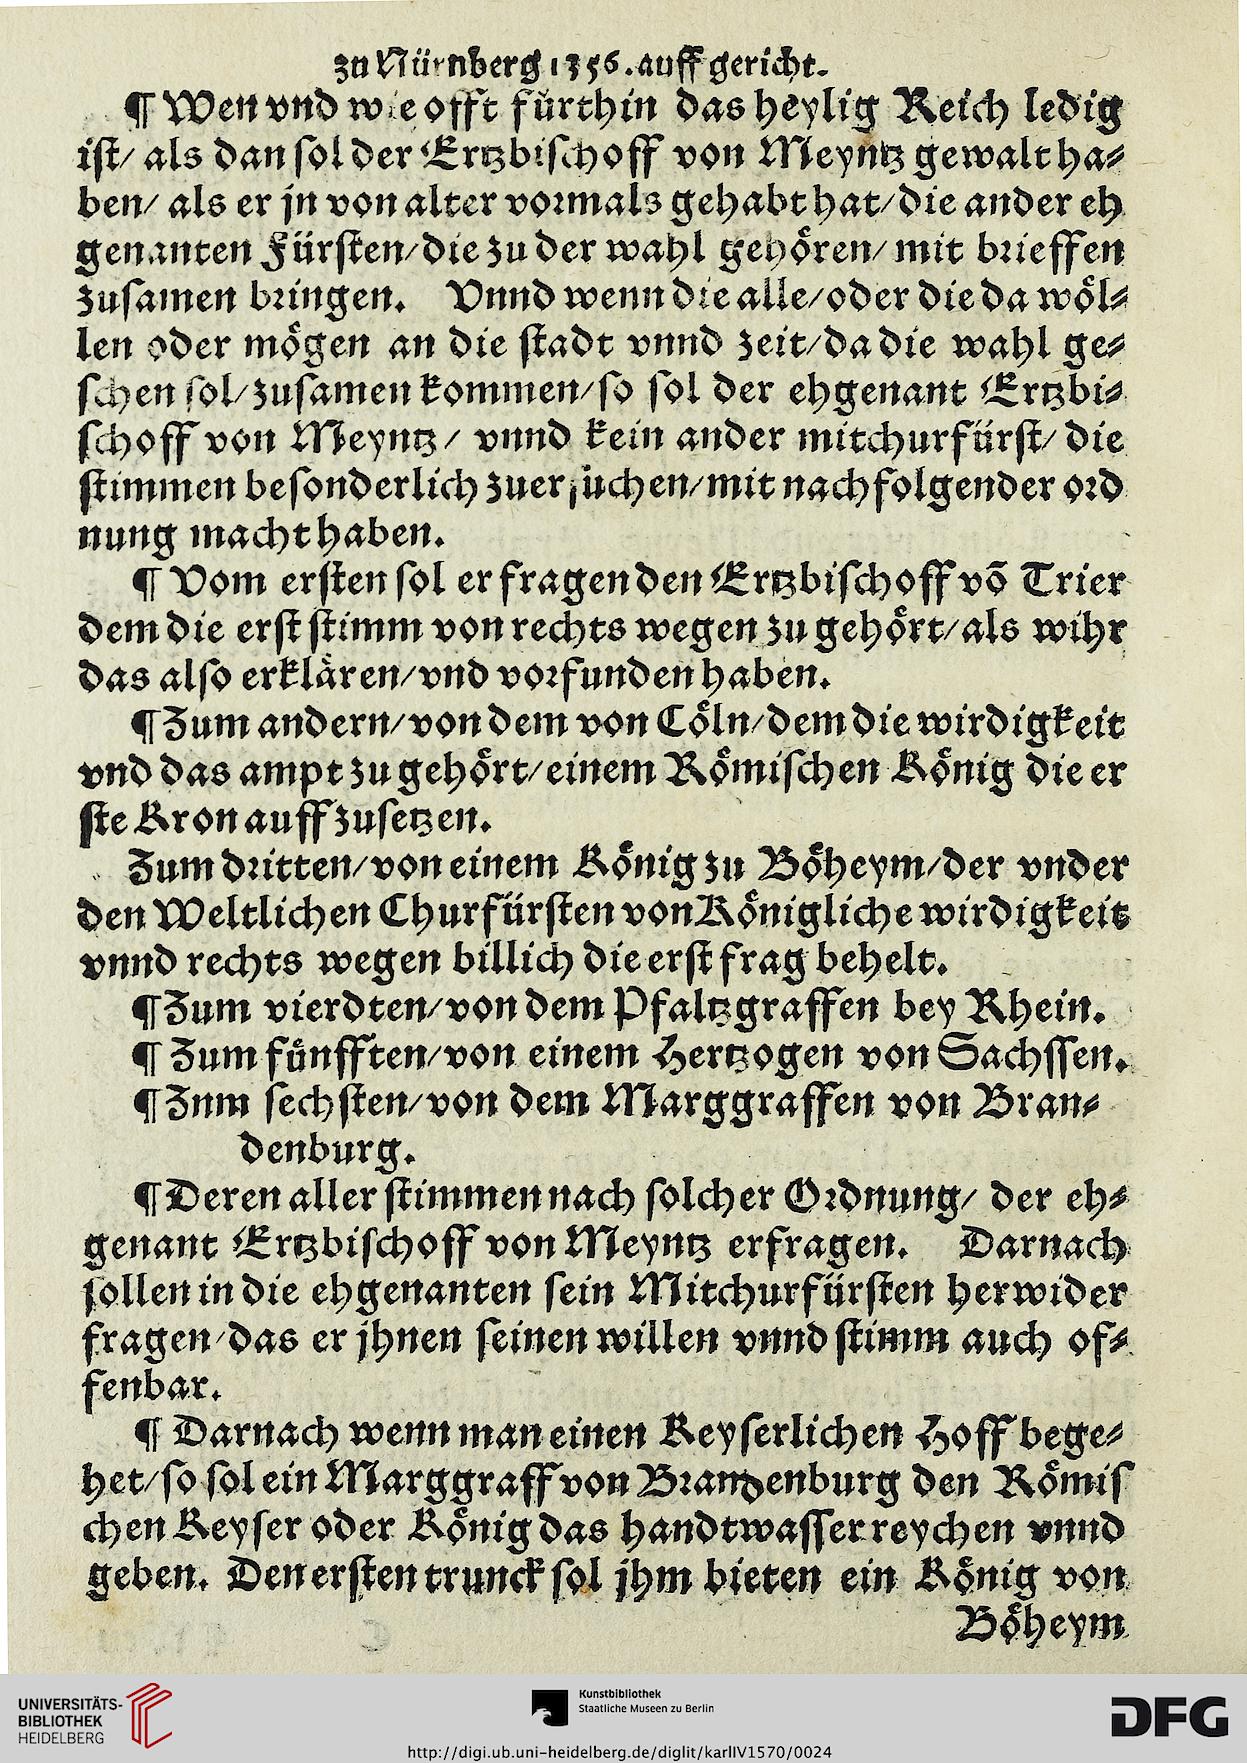 zu Nürnberg 1356. auff gericht.
¶ Wen vnd wie offt fürthin das heylig Reich ledig
ist/ als dan sol der Ertzbischoff von Meyntz gewalt ha⸗
ben/ als er jn von alter vormals gehabt hat/ die ander eh
genanten Fürsten/ die zu der wahl gehören/ mit brieffen
zusamen bringen. Vnnd wenn die alle/ oder die da wöl⸗
len oder mögen an die stadt vnnd zeit/ da die wahl ge⸗
schen sol/ zusamen kommen/ so sol der ehgenant Ertzbi⸗
schoff von Meyntz/ vnnd kein ander mitchurfürst/ die
stimmen besonderlich zuersuchen/ mit nachfolgender ord
nung macht haben.
¶ Vom ersten sol er fragen den Ertzbischoff võ Trier
dem die erst stimm von rechts wegen zu gehört/ als wihr
das also erklären/ vnd vorfunden haben.
¶ Zum andern/ von dem von Cöln/ dem die wirdigkeit
vnd das ampt zu gehört/ einem Römischen König die er
ste Kron auff zusetzen.
Zum dritten/ von einem König zu Böheym/ der vnder
den Weltlichen Churfürsten von Königliche wirdigkeit
vnnd rechts wegen billich die erst frag behelt.
¶ Zum vierdten/ von dem Pfaltzgraffen bey Rhein.
¶ Zum fünfften/ von einem Hertzogen von Sachssen.
¶ Znm sechsten/ von dem Marggraffen von Bran⸗
denburg.
¶ Deren aller stimmen nach solcher Ordnung/ der eh⸗
genant Ertzbischoff von Meyntz erfragen. Darnach
sollen in die ehgenanten sein Mitchurfürsten herwider
fragen/ das er jhnen seinen willen vnnd stimm auch of⸗
fenbar.
¶ Darnach wenn man einen Keyserlichen Hoff bege⸗
het/ so sol ein Marggraff von Brandenburg den Römis
chen Keyser oder König das handtwasser reychen vnnd
geben. Den ersten trunck sol jhm bieten ein König von
Böheym
UNIVERSITÄTS-
BIBLIOTHEK
HEIDELBERG
Kunstbibliothek
Staatliche Museen zu Berlin
DFG
http://digi.ub.uni-heidelberg.de/diglit/karlIV1570/0024